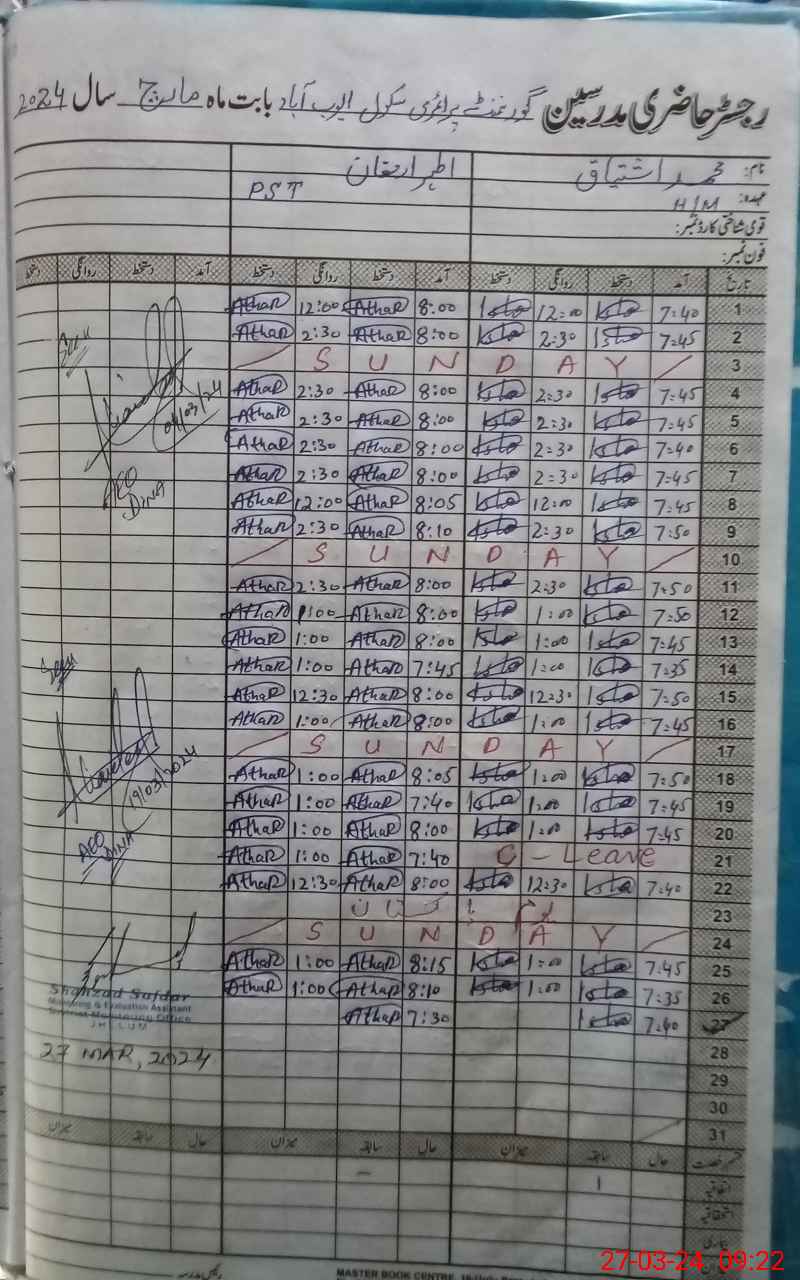 رجسٹر حاضری مدرسین گورنمنٹ پرائمری سکول ایوب آباد بابت ماہ مارچ سال 2024
نام: محمد اشتیاق
عہدہ: H/M PST
قومی شناختی کارڈ نمبر:
فون نمبر:
تاریخ آمد دستخط روانگی دستخط آمد دستخط روانگی دستخط آمد دستخط روانگی دستخط
1 7:40 12:00 8:00 AthaR 12:00 AthaR
2 7:45 2:30 8:00 AthaR 2:30 AthaR
3 S U N D A Y
4 7:45 2:30 8:00 AthaR 2:30 AthaR
5 7:45 2:30 8:00 AthaR 2:30 AthaR
6 7:40 2:30 8:00 AthaR 2:30 AthaR
7 7:45 2:30 8:00 AthaR 2:30 AthaR
8 7:45 12:00 8:05 AthaR 12:00 AthaR
9 7:50 2:30 8:10 AthaR 2:30 AthaR
10 S U N D A Y
11 7:50 2:30 8:00 AthaR 2:30 AthaR
12 7:50 1:00 8:00 AthaR 1:00 AthaR
13 7:45 1:00 8:00 AthaR 1:00 AthaR
14 7:35 1:00 7:45 AthaR 1:00 AthaR
15 7:50 12:30 8:00 AthaR 12:30 AthaR
16 7:45 1:00 8:00 AthaR 1:00 AthaR
17 S U N D A Y
18 7:50 1:00 8:05 AthaR 1:00 AthaR
19 7:45 1:00 7:40 AthaR 1:00 AthaR
20 7:45 1:00 8:00 AthaR 1:00 AthaR
21 C - Leave 7:40 AthaR 1:00 AthaR
22 7:40 12:30 8:00 AthaR 12:30 AthaR
23 یوم پاکستان
24 S U N D A Y
25 7:45 1:00 8:15 AthaR 1:00 AthaR
26 7:35 1:00 8:10 AthaR 1:00 AthaR
27 7:40 7:30 AthaR
28
29
30
31
Seen
04/03/24
AEO
DINA
Seen
19/03/2024
AEO
DINA
Shahzad Safdar
Monitoring & Evaluation Assistant
District Monitoring Office
JHELUM
27 MAR, 2024
حال سابقہ میزان حال سابقہ میزان حال سابقہ میزان
اتفاقیہ 1 -
استحقاقیہ
بیماری
MASTER BOOK CENTRE
27-03-24 09:22